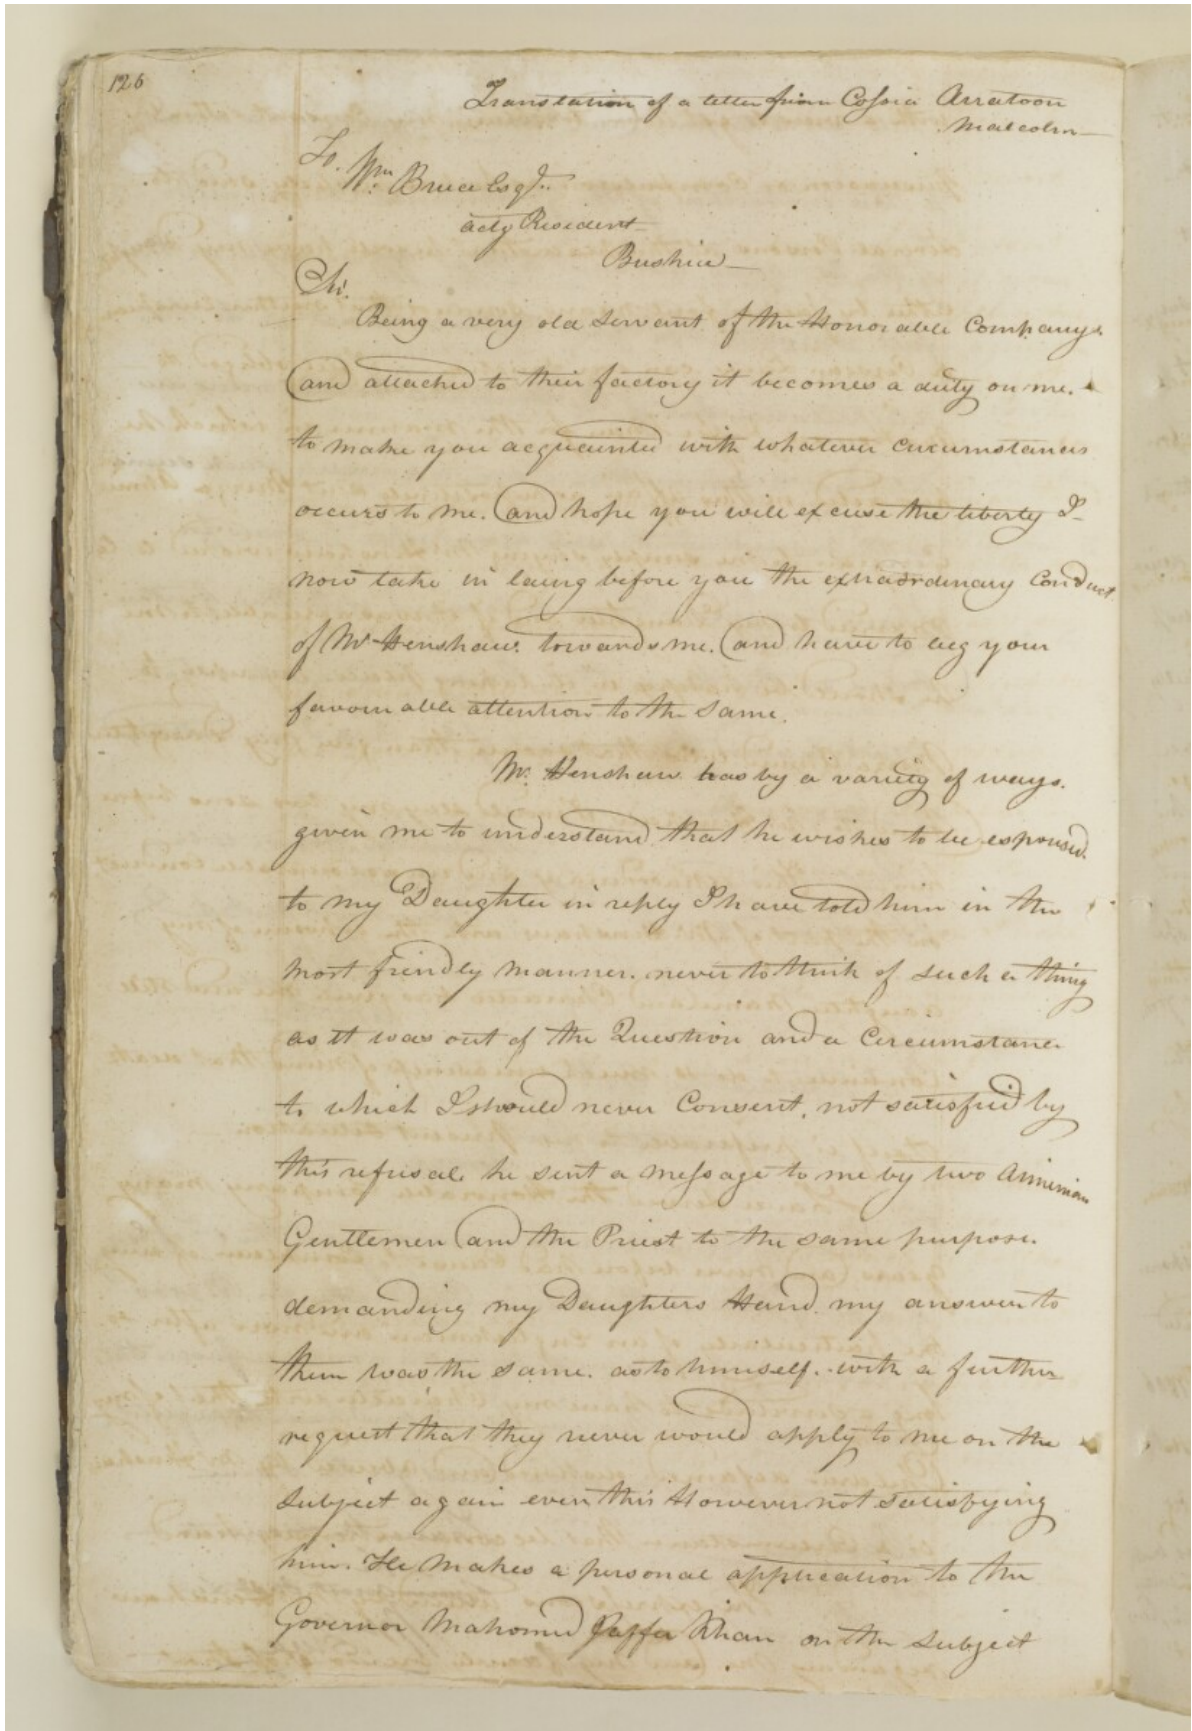 126
Translation of a letter from Cossia Arratoon
Malcolm
To.
Wm. Bruce Esqr.
actg Resident
Bushire
Sir.
Being a very old Servant of the Honorable Companys
and attached to their factory it becomes a duty on me.
to make you acquainted with whatever circumstances
occurs to me. and hope you will excuse the liberty I
now take in laing before you the extraordinary Conduct
of Mr Henshaw. towards me. and have to beg your
favourable attention to the Same.
Mr. Henshaw has by a variety of ways.
given me to understand that he wishes to be espoused.
to my Daughter in reply I have told him in the
most frindly manner. never to think of such a thing
as it was out of the Question and a Circumstance
to which I should never Consent, not satisfied by
this refusal he sent a message to me by two Armenian
Gentlemen and the Priest to the same purpose.
demanding my Daughters Hand. my answer to
them was the same. as to himself. with a further
request that they never would apply to me on the
Subject again even this However not Satisfying
him. He makes a personal application to the
Governor Mahomed Jaffer Khan on the Subject